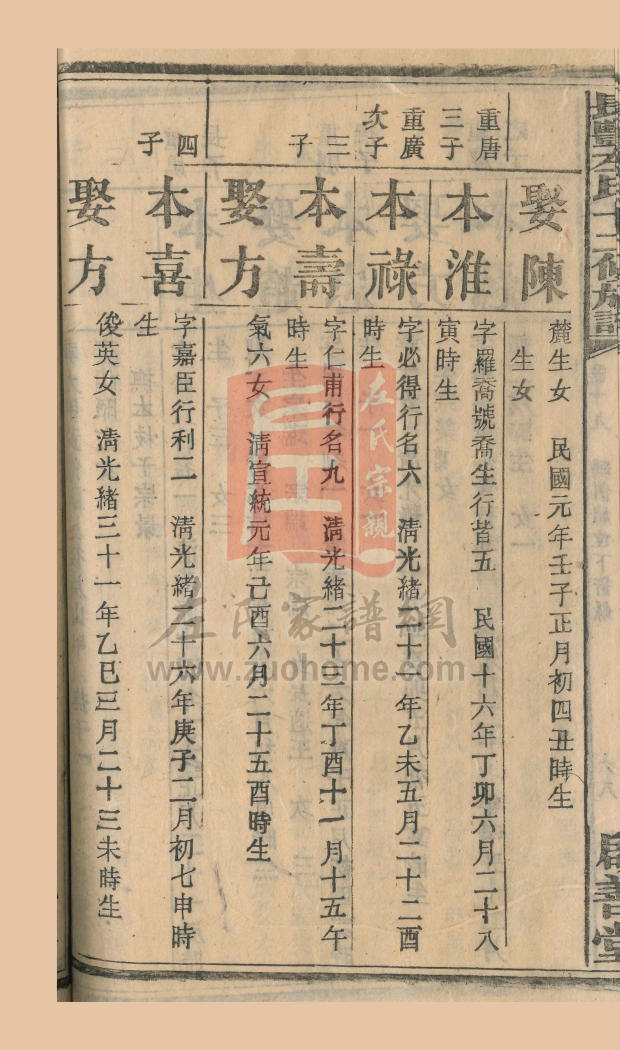 長豐左氏十二修族譜
啟善堂
娶陳
麓生女 民國元年壬子正月初四丑時生
生女
重唐三子
本淮
字羅喬號喬生行皆五 民國十六年丁卯六月二十八
寅時生
重廣次子
本祿
字必得行名六 淸光緒二十一年乙未五月二十二酉
時生
三子
本壽
字仁甫行名九 淸光緒二十三年丁酉十一月十五午
時生
娶方
氣六女 淸宣統元年己酉六月二十五酉時生
四子
本喜
字嘉臣行利二 淸光緒二十六年庚子二月初七申時
生
娶方
俊英女 淸光緒三十一年乙巳三月二十三未時生
左氏宗親
左氏家譜網
www.zuohome.com